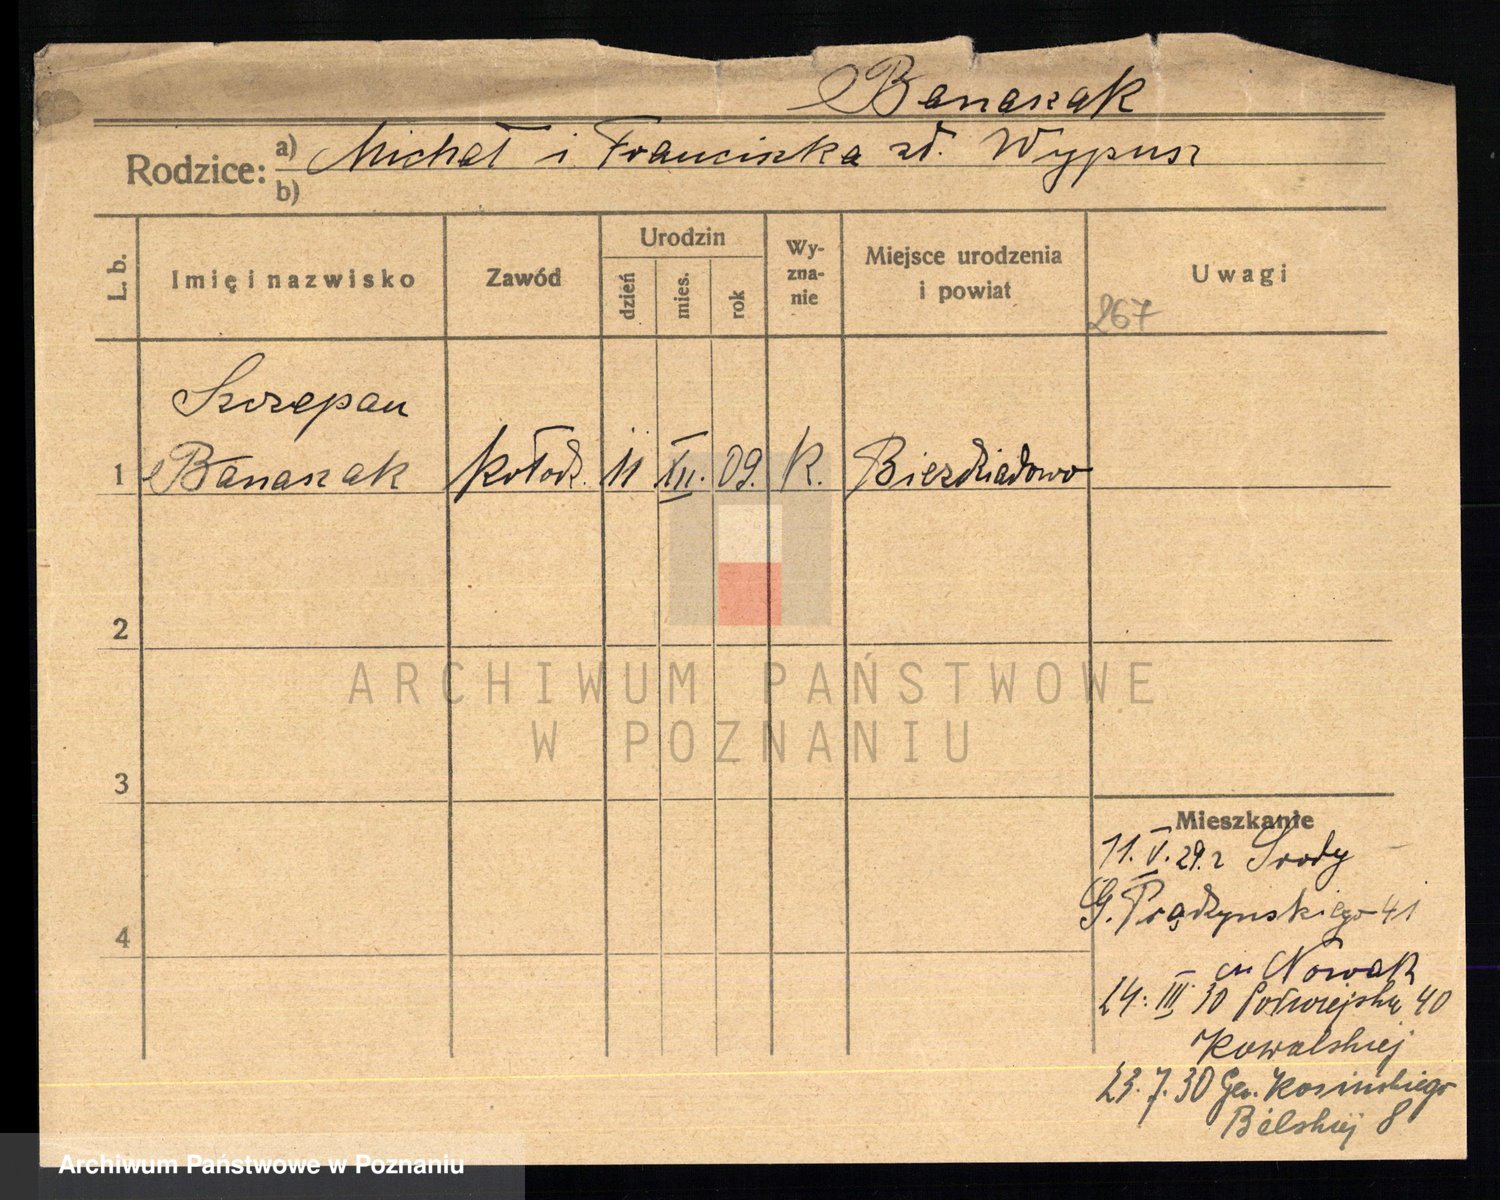 Banaszak
Rodzice: a) Michał i Franciszka zd. Wypusz
b)
L. b.
Imię i nazwisko
Zawód
Urodzin
dzień
mies.
rok
Wy-
zna-
nie
Miejsce urodzenia
i powiat
Uwagi
267
Szczepan
1 Banaszak kołodz. 11 XII. 09. K. Biezdziadowo
2
3
4
Mieszkanie
11. V. 29. z Środy
G. Prądzyńskiego 41
Nowak
24. III 30 Półwiejska 40
Kowalskiej
23. 7. 30 Gen. Kosińskiego
Bélskiej 8
ARCHIWUM PAŃSTWOWE
W POZNANIU
Archiwum Państwowe w Poznaniu